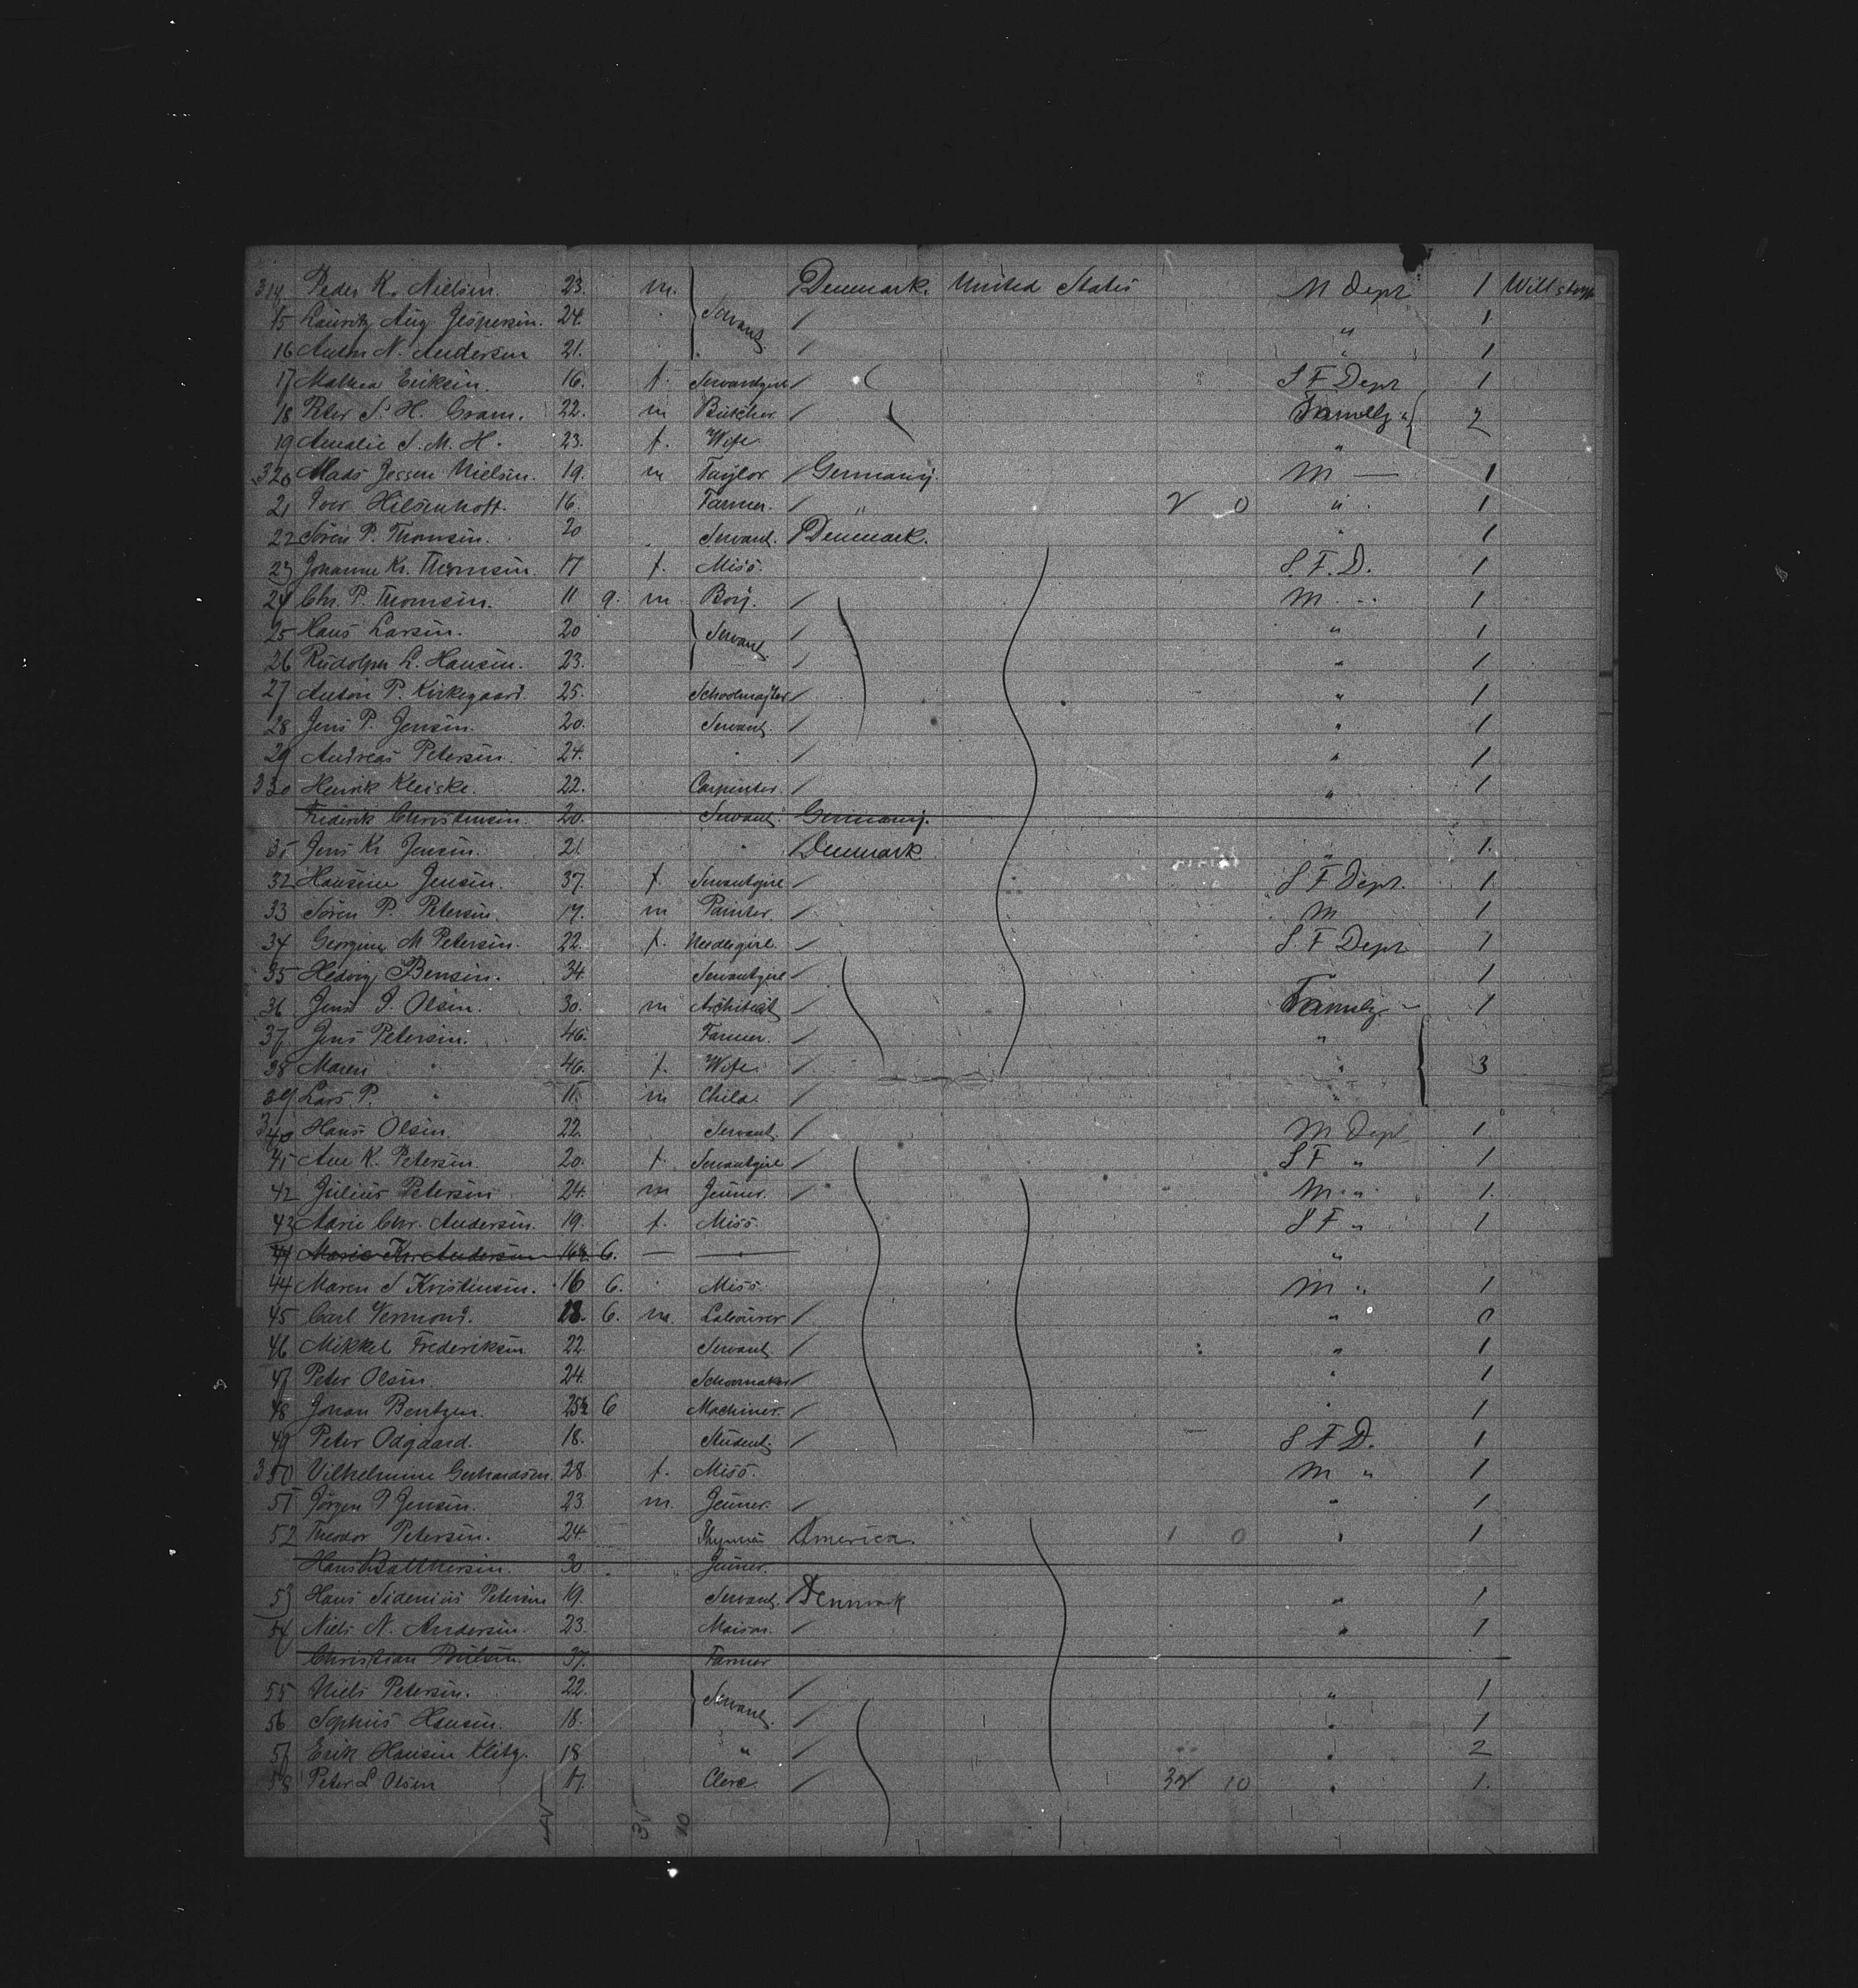 314 Peder K. Nielsen. 23. m. Denmark. United States M Dept 1
15 Lauritz Aug Jespersen. 24. Servant. / " 1
16 Anton N. Andersen 21. / " 1
17 Mathea Eriksen. 16. f. Servantgirl / S F Dept 1
18 Peter S. H. Gram. 22. m Butcher / Familly " 2
19 Amalie S. M. H. 23. f. Wife "
320 Mads Jessen Nielsen. 19. m Taylor / Germany. M — 1
21 Iver Hilsenhoft. 16. Farmer. / " 2 0 " 1
22 Sören P. Thomsen. 20 Servant. / Denmark. " 1
23 Johanne Kr. Thomsen. 17 f. Miss. S. F. D. 1
24 Chr. P. Thomsen. 11 9. m Boy. / M. 1
25 Hans Larsen. 20 Servant. / " 1
26 Rudolph L. Hansen. 23. / " 1
27 Anton P. Kirkegaard. 25. Schoolmaster / " 1
28 Jens P. Jensen. 20. Servant. / " 1
29 Andreas Petersen. 24. " / " 1
330 Henrik Kleiske. 22. Carpenter. / " 1
Frederik Christensen. 20. Servant. Germany.
31 Jens Kr. Jensen. 21 " / Denmark " 1.
32 Hansine Jensen. 37. f. Servantgirl / S F Dept. 1
33 Sören P. Petersen. 17. m Painter. / M 1
34 Georgine M Petersen. 22. f. Needlegirl. / S. F Dept 1
35 Hedvig Bensen. 34. Servantgirl / 1
36 Jens J. Olsen. 30. m Architect / Family 1
37 Jens Petersen. 46. Farmer. / "
38 Maren " 46. f. Wife. / " 3
39 Lars P. " 11. m Child. / "
340 Hans Olsen. 22. Servant. / M Dept 1
41 Ane K. Petersen. 20. f. Servantgirl / S F " 1
42 Julius Petersen 24. m Joiner. / M " 1.
43 Marie Chr. Andersen. 19. f. Miss. S F " 1
44 Marie Kr. Andersen 16 6. — — "
44 Maren S Kristensen. 16 6. " Miss. M " 1
45 Carl Vermond. 18. 6. m. Labourer / " 0
46 Mikkel Frederiksen 22. Servant. / " 1
47 Peter Olsen. 24. Schoomaker / " 1
48 Johan Bentzen. 25½ 6 Machiner. / " 1
49 Peter Odgaard. 18. Student. / S F D. 1
350 Vilhelmine Gerhardsen. 28. f. Miss. M " 1
51 Jörgen P Jensen. 23. m. Joiner. / " 1
52 Theodor Petersen. 24. America. 1 0 " 1
Hans Balthersen. 30. Joiner.
53 Hans Sidenius Petersen 19. Servant. / Denmark " 1
54 Niels N. Andersen. 23. Maison. / " 1
Christian 37. Farmer
55 Niels Petersen. 22. Servant. / " 1
56 Sophus Hansen. 18. / " 1
57 Erik Hansen Klitg. 18 " / " 2
58 Peter L Olsen 17. Clerc. / 32 10 " 1.
32 10